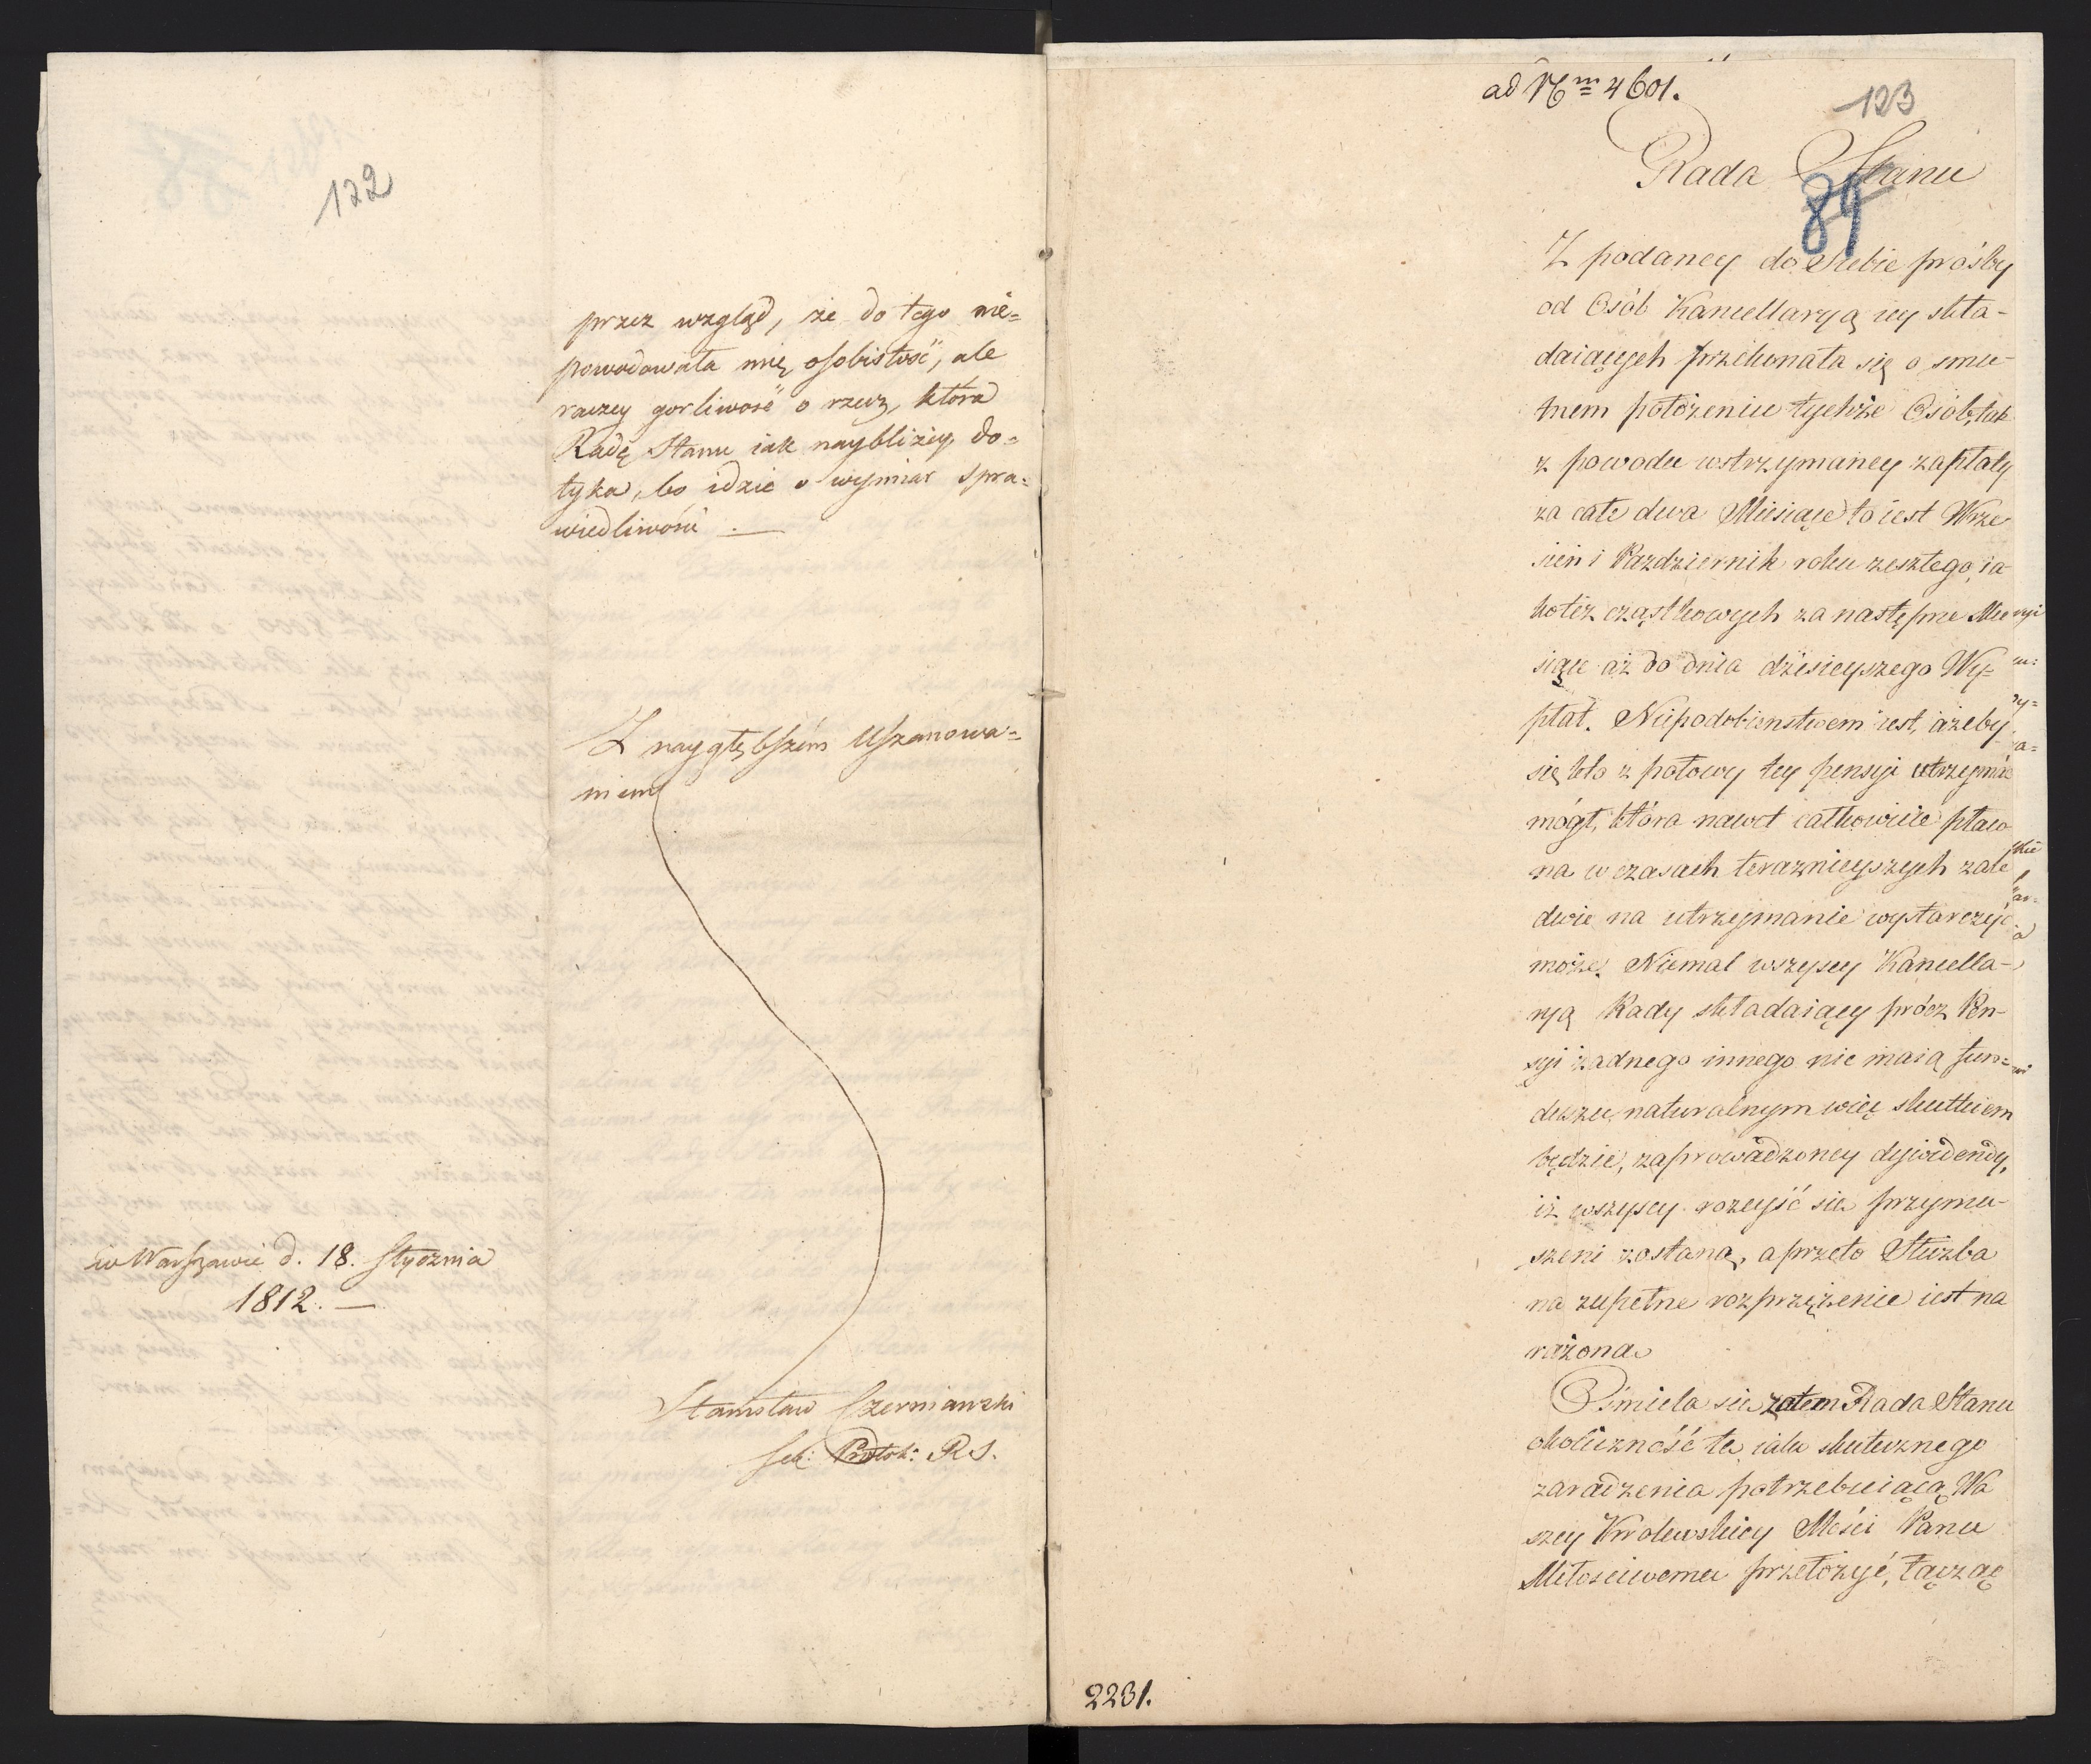 122
przez wzgląd, że do tego nie=
powodowała mię osobistość, ale
raczey gorliwość o rzecz, która
Radę Stanu iak naybliżey do=
tyka, bo idzie o wymiar spra=
wiedliwości. —
Z naygłębszém Uszanowa=
niem
w Warszawie d. 18. Stycznia
1812. —
Stanisław Czerniawski
Sek: Protok: R S.
ad Nm 4601.
123
Rada Stanu
89
Z podaney do Siebie prośby
od Osób Kancellaryą iey skła-
daiących przekonała się o smu-
tnem położeniu tychże Osób, tak
z powodu wstrzymaney zapłaty
za całe dwa Miesiące to iest Wrze
sień i Pazdziernik roku zeszłego, ia
koteż cząstkowych za następne Mie
siące aż do dnia dzisieyszego Wy=
płat. Niepodobieństwem iest, ażeby
się kto z połowy tey pensyi utrzymać
mógł, która nawet całkowicie płaco
na w czasach teraznieyszych zale
dwie na utrzymanie wystarczyć
może. Niemal wszyscy Kancella-
ryą Rady składaiący prócz Pen-
syi żadnego innego nie maią fun=
duszu, naturalnym więc skutkiem
będzie, zaprowadzoney dywidendy,
iż wszyscy rozeyść się przymu-
szeni zostaną, a przeto Służba
na zupełne rozprzężenie iest na
rażona.
Ośmiela się zatem Rada Stanu
okoliczność tę iako skutecznego
zaradzenia potrzebuiącą Wa
szey Krolewskiey Mości Panu
Miłościwemu przełożyć, łącząc
2231.